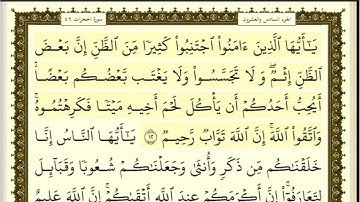 الجزء السادس والعشرون سورة الحجرات ٤٩
يَـٰٓأَيُّهَا ٱلَّذِينَ ءَامَنُوا۟ ٱجْتَنِبُوا۟ كَثِيرًا مِّنَ ٱلظَّنِّ إِنَّ بَعْضَ
ٱلظَّنِّ إِثْمٌ ۖ وَلَا تَجَسَّسُوا۟ وَلَا يَغْتَب بَّعْضُكُم بَعْضًا ۚ
أَيُحِبُّ أَحَدُكُمْ أَن يَأْكُلَ لَحْمَ أَخِيهِ مَيْتًا فَكَرِهْتُمُوهُ ۚ
وَٱتَّقُوا۟ ٱللَّهَ ۚ إِنَّ ٱللَّهَ تَوَّابٌ رَّحِيمٌ ١٢ يَـٰٓأَيُّهَا ٱلنَّاسُ إِنَّا
خَلَقْنَـٰكُم مِّن ذَكَرٍ وَأُنثَىٰ وَجَعَلْنَـٰكُمْ شُعُوبًا وَقَبَآئِلَ
لِتَعَارَفُوٓا۟ ۚ إِنَّ أَكْرَمَكُمْ عِندَ ٱللَّهِ أَتْقَىٰكُمْ ۚ إِنَّ ٱللَّهَ عَلِيمٌ